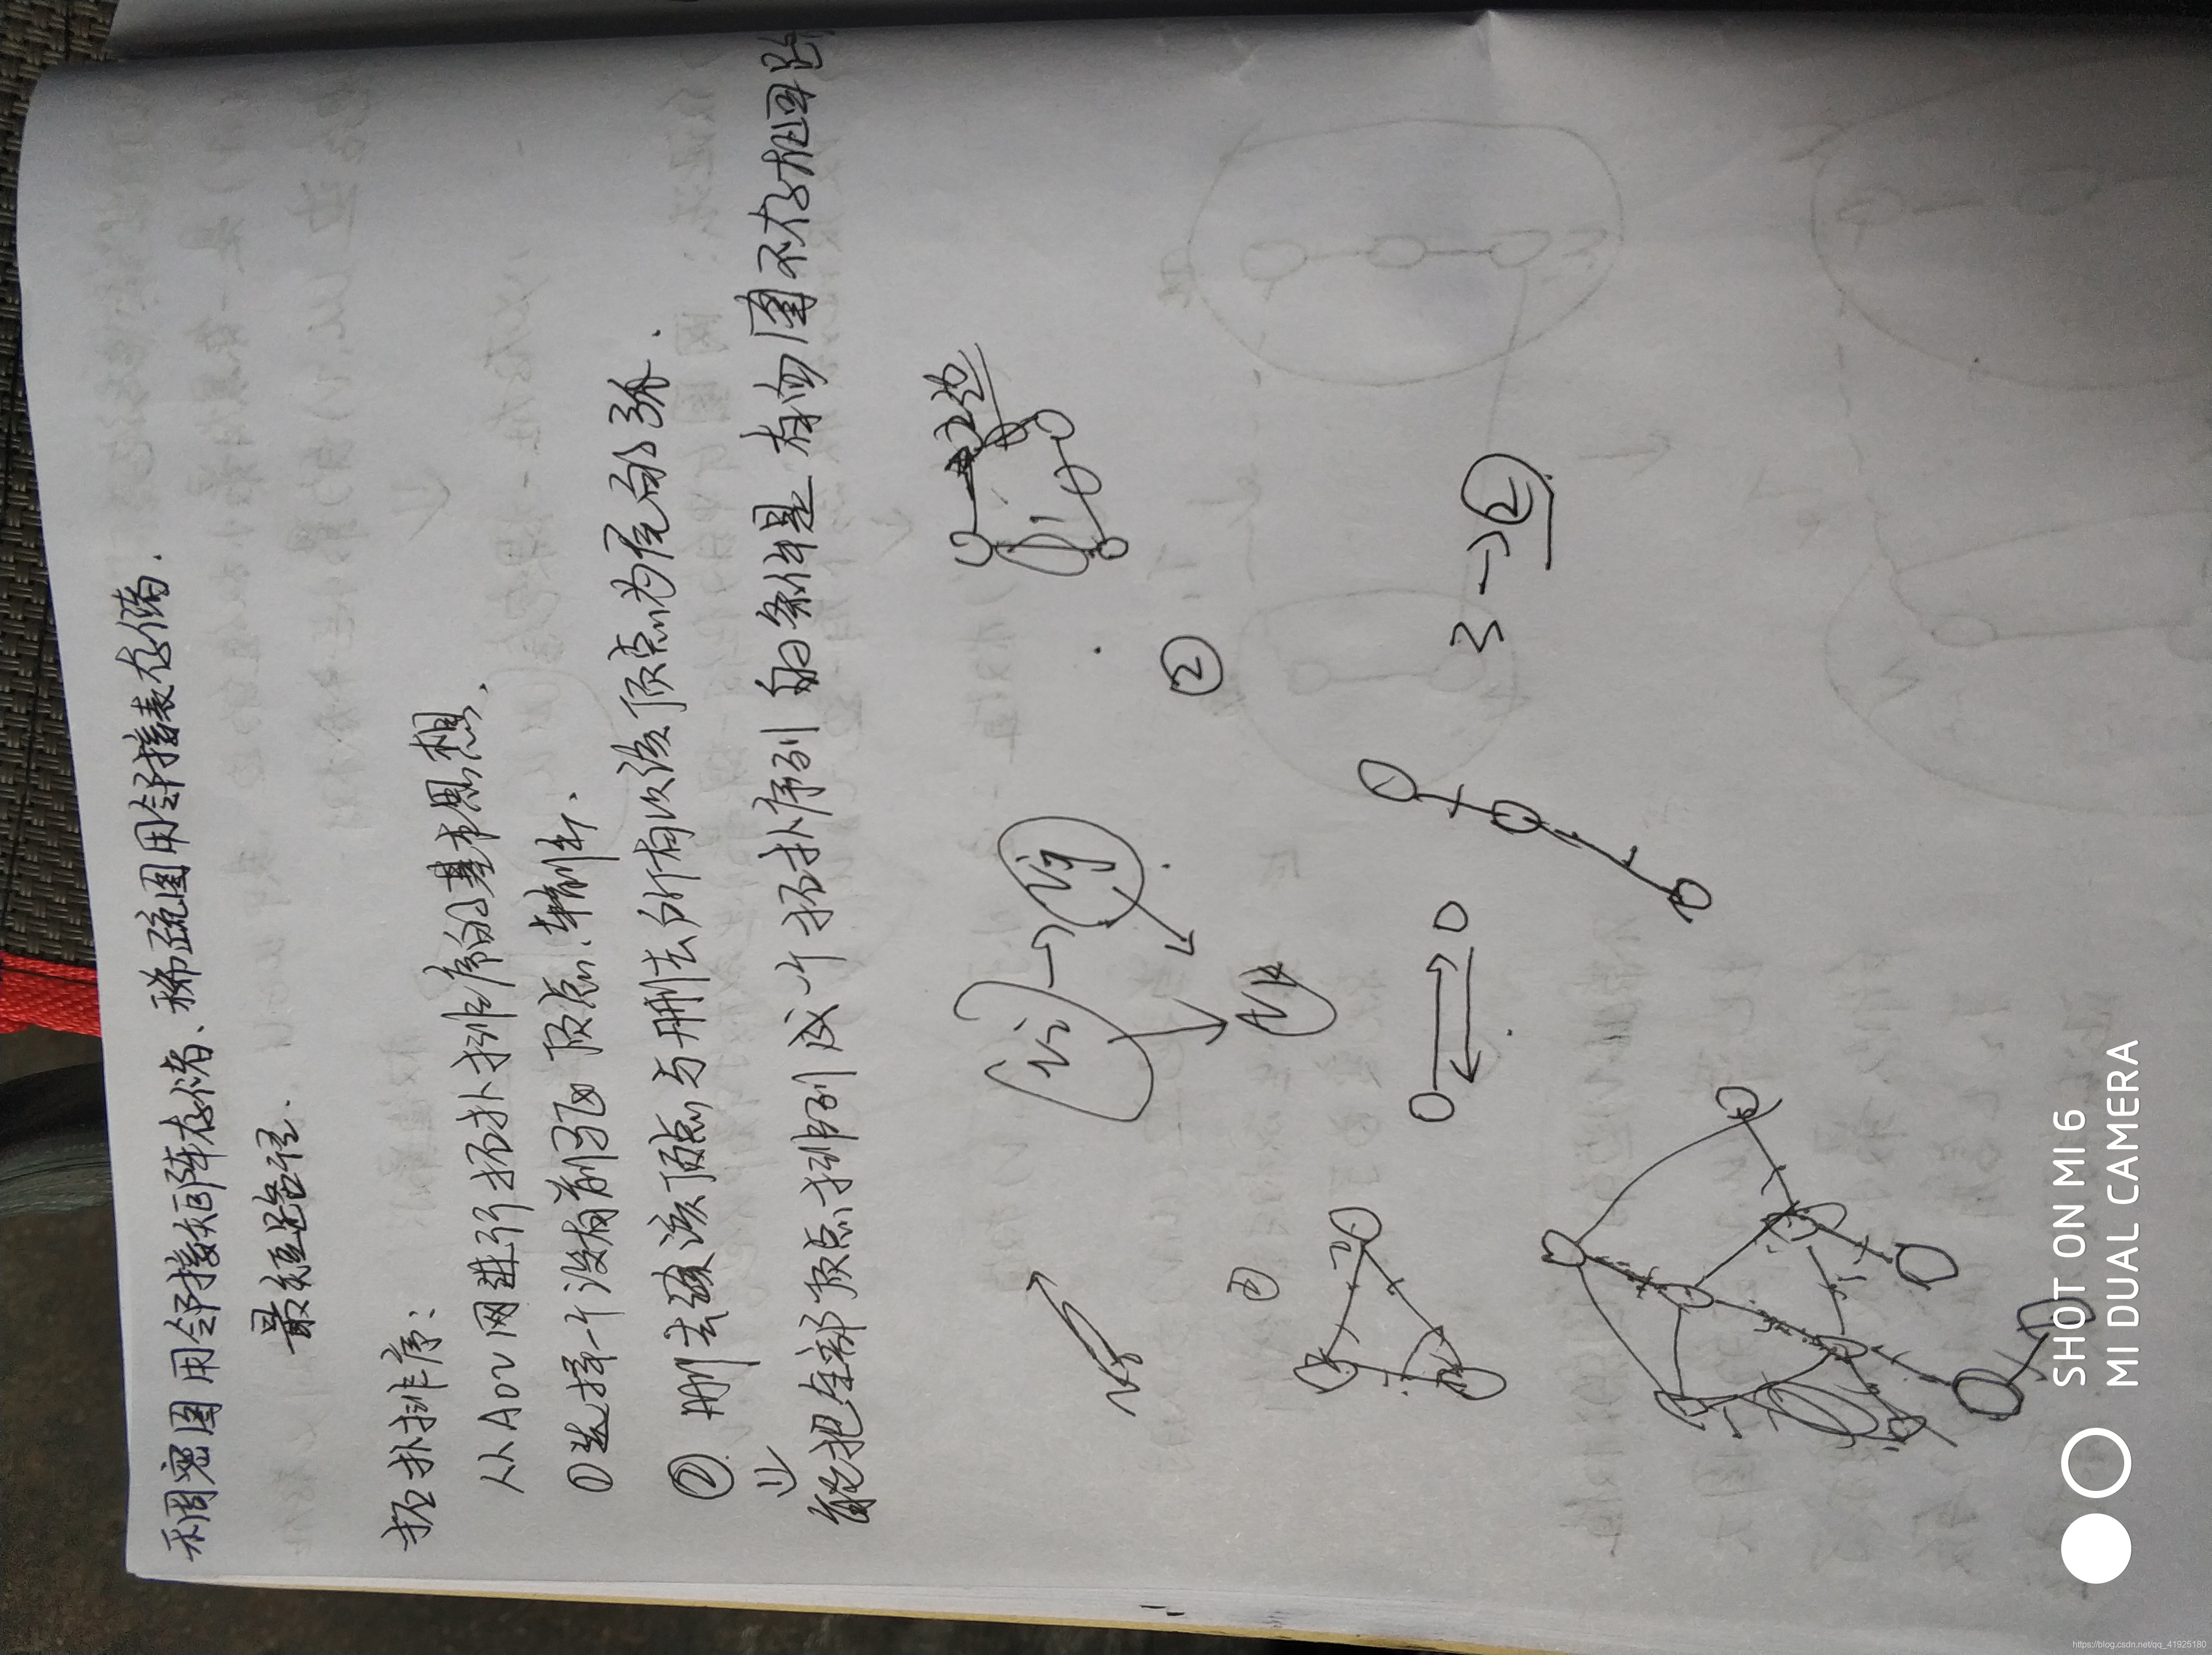 稠密图用邻接矩阵存储、稀疏图用邻接表存储.
最短路径.
拓扑排序:
从AOV网进行拓扑排序的基本思想.
①选择一个没有前驱顶点.输出.
② 删去该顶点与删去所有以该顶点为尾的弧.
能把全部顶点排列成一个拓扑序列的条件是有向图不存在回路
Vi
Vj
Vk
②
①
3→②
SHOT ON MI 6
MI DUAL CAMERA
https://blog.csdn.net/qq_41925180